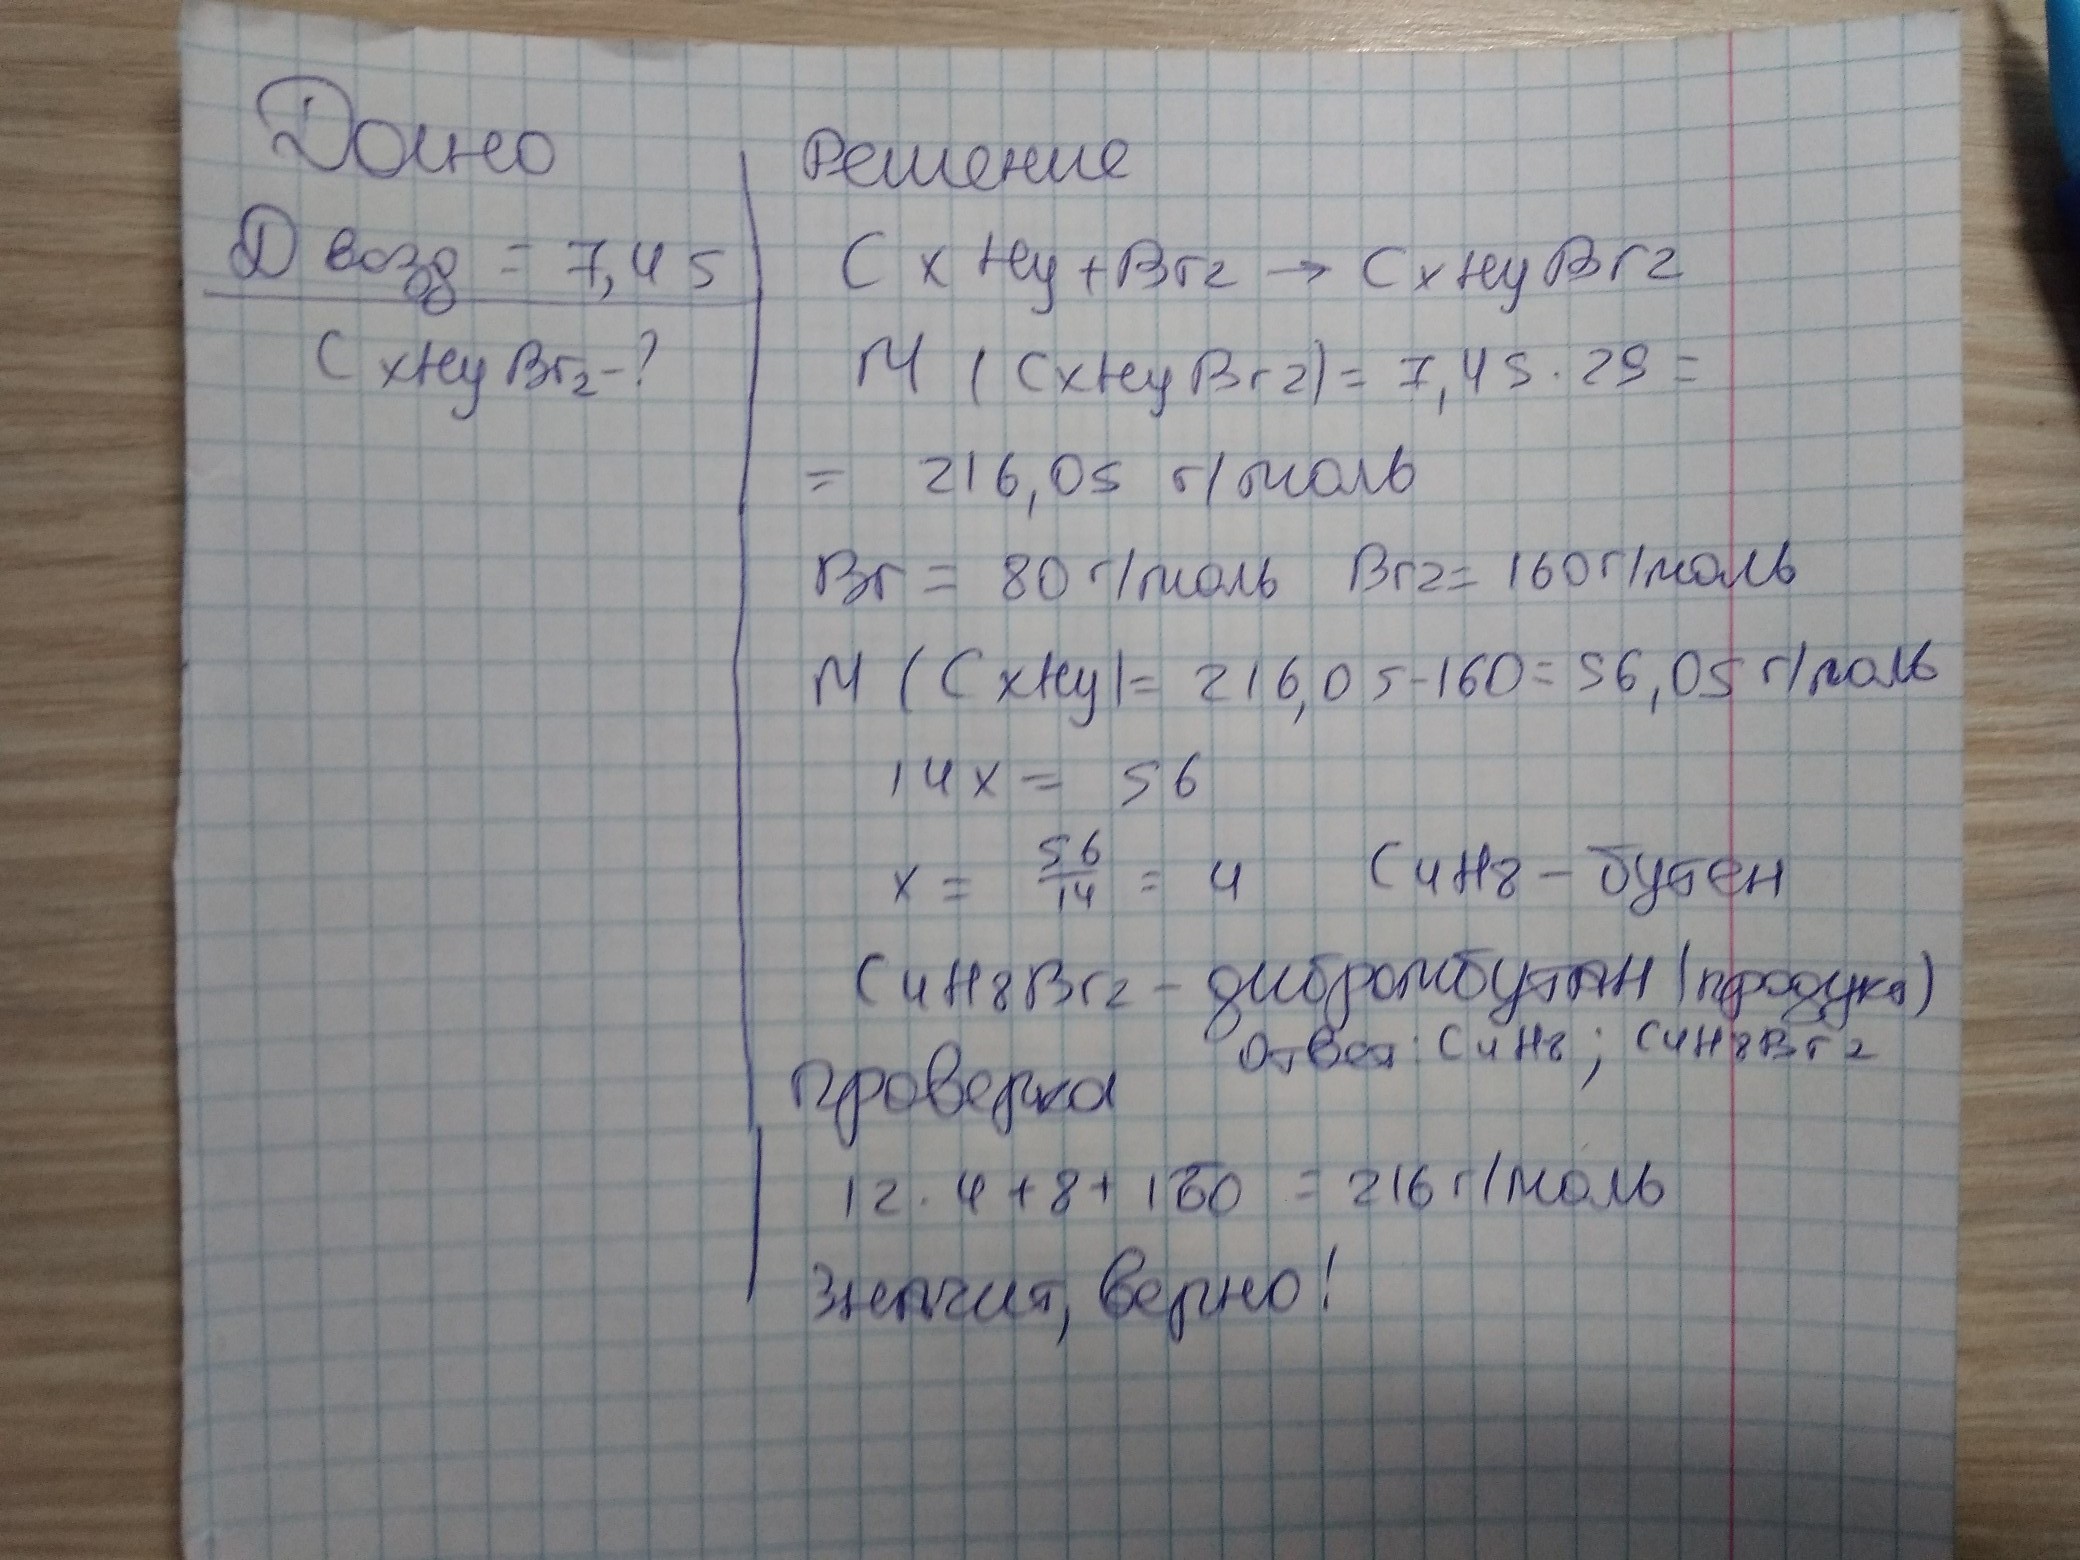 Дано
D возд = 7,45
CxHyBr2-?
Решение
CxHy+Br2 → CxHyBr2
M (CxHyBr2)= 7,45·29=
= 216,05 г/моль
Br= 80г/моль Br2= 160г/моль
M (CxHy)= 216,05-160=56,05г/моль
14x= 56
x= 56/14 = 4 C4H8 - бутен
C4H8Br2 - дибромбутан (продукт)
Ответ: C4H8; C4H8Br2
Проверка
12·4+8+160 = 216г/моль
Значит, верно!